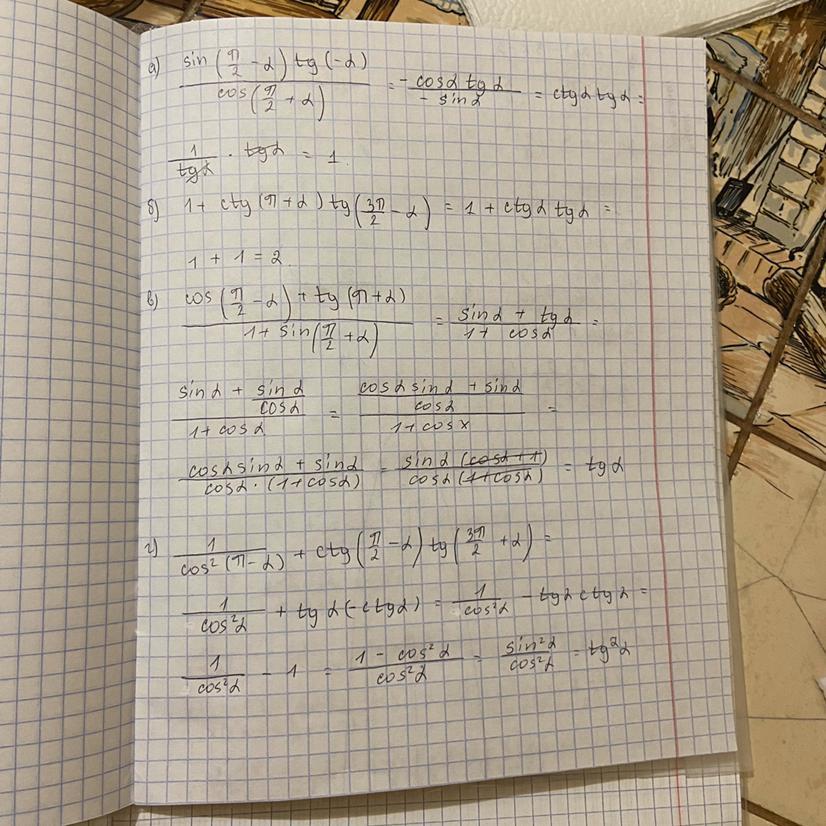 а) sin(π/2 - α) tg(-α) / cos(π/2 + α) = -cosα tgα / -sinα = ctgα tgα =
1/tgα · tgα = 1.
б) 1 + ctg(π + α) tg(3π/2 - α) = 1 + ctgα tgα =
1 + 1 = 2.
в) cos(π/2 - α) + tg(π + α) / 1 + sin(π/2 + α) = sinα + tgα / 1 + cosα =
sinα + sinα/cosα / 1 + cosα = cosα sinα + sinα / cosα / 1 + cosx =
cosα sinα + sinα / cosα · (1 + cosα) = sinα (cosα + 1) / cosα (1 + cosα) = tgα
г) 1 / cos²(π - α) + ctg(π/2 - α) tg(3π/2 + α) =
1/cos²α + tgα(-ctgα) = 1/cos²α - tgα ctgα =
1/cos²α - 1 = 1 - cos²α / cos²α = sin²α / cos²α = tg²α